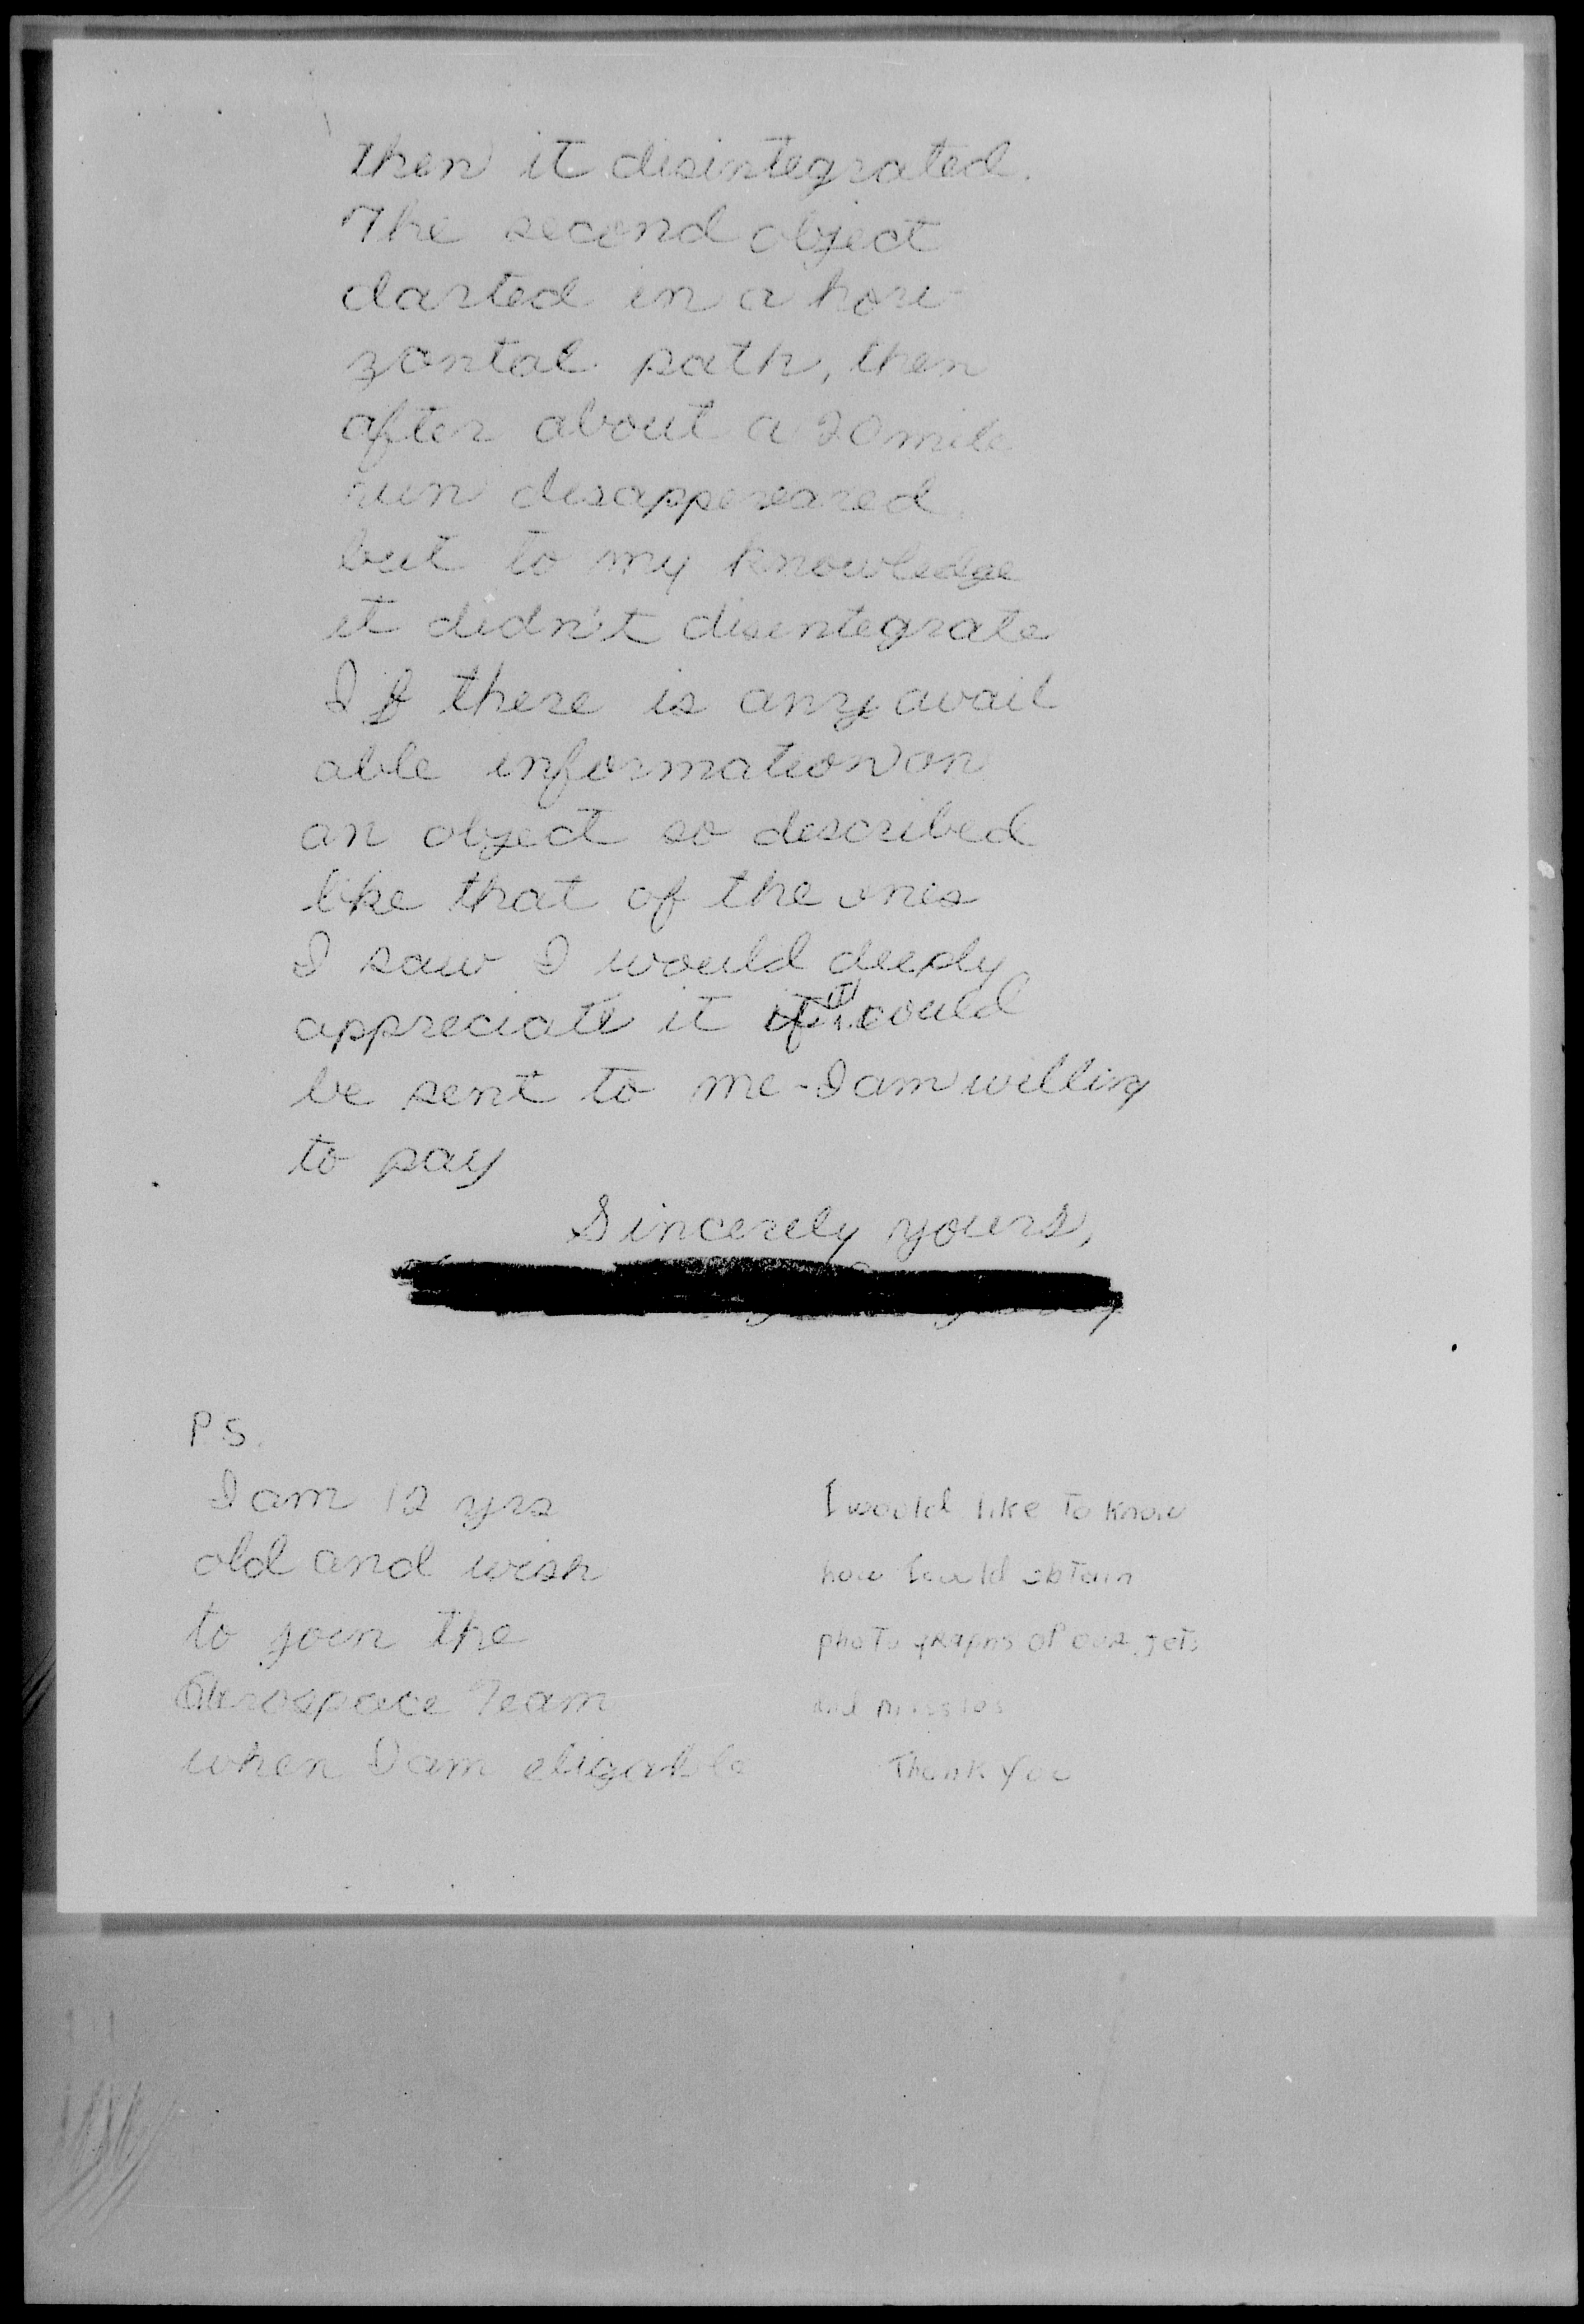 then it disintegrated.
The second object
darted in a hori-
zontal path, then
after about a 20 mile
run disappereared
but to my knowledge
it didn't disintegrate
If there is any avail
able information on
an object so described
like that of the ones
I saw I would deeply
appreciate it if it could
be sent to me - I am willing
to pay
Sincerely yours,
P.S.
I am 12 yrs
old and wish
to join the
Aerospace Team
when I am eligable
I would like to know
how I could obtain
photographs of our jets
and missles
Thank You